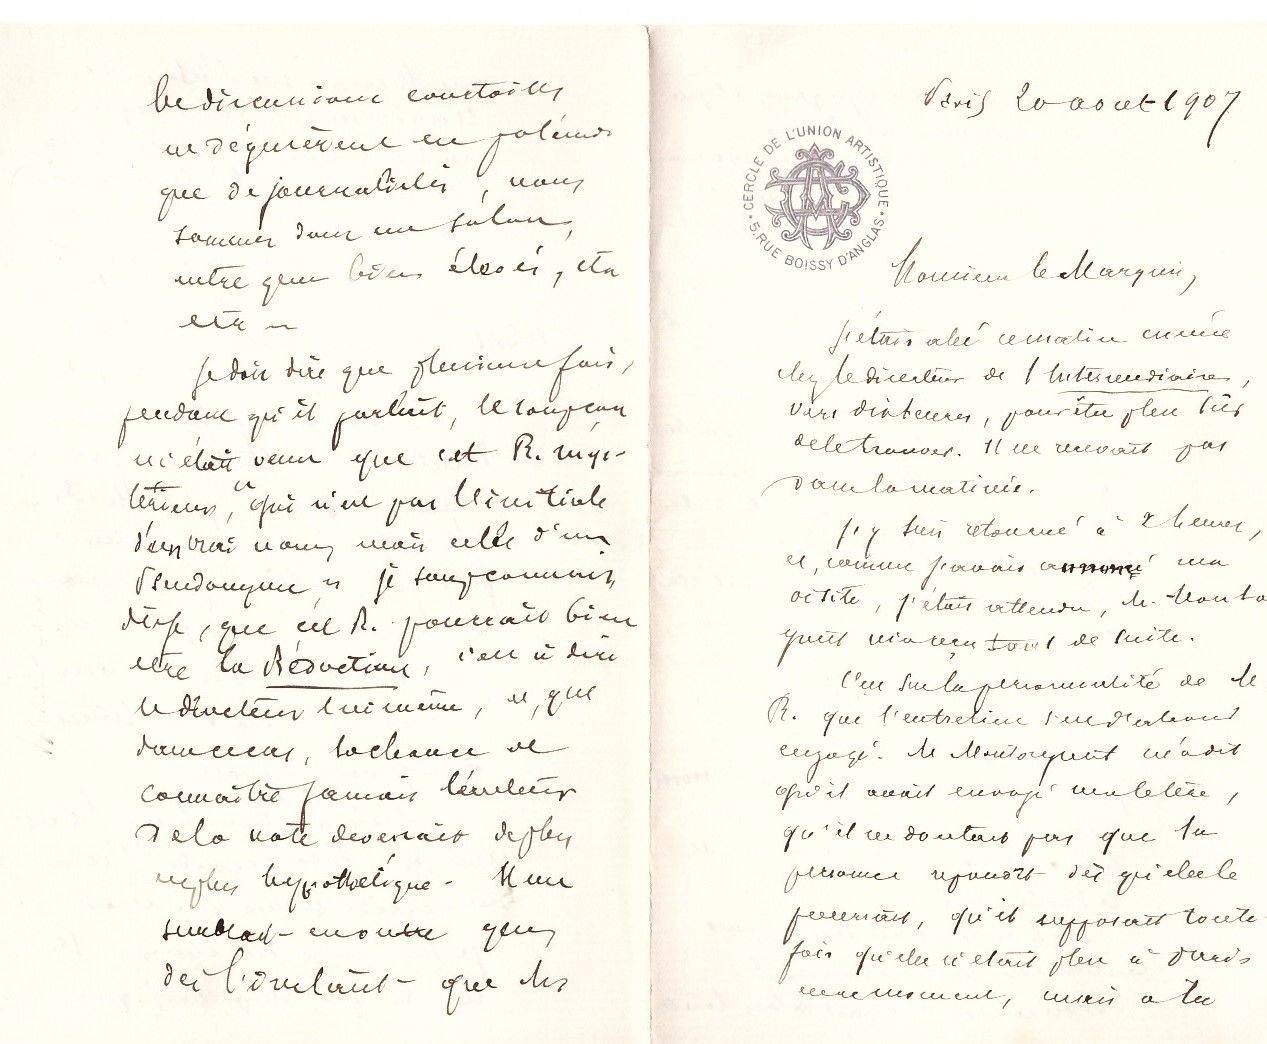 Paris 20 aout 1907
CERCLE DE L'UNION ARTISTIQUE
5, RUE BOISSY D'ANGLAS
Monsieur le Marquis,
J'étais allé ce matin même
chez le directeur de l'Intermédiaire,
vers dix heures, pour être plus sûr
de le trouver. Il ne recevait pas
dans la matinée.
J'y suis retourné à 2 heures,
et, comme j'avais annoncé ma
visite, j'étais attendu, M. Monto
gueil me reçu tout de suite.
C'est sur la personnalité de M
R. que l'entretien s'est d'abord
engagé. M. Montorgueil m'a dit
qu'il avait envoyé ma lettre,
qu'il ne doutait pas que la
personne répondît dès qu'elle le
pourrait, qu'il supposait toute-
fois qu'elle n'était plus à Paris
en ce moment, mais a la
les discussions courtoises
ne dégénèrent en polémi
que de journalistes, nous
sommes dans un salon,
entre gens biens élevés, etc
etc
Je dois dire que plusieurs fois,
pendant qu'il parlait, le soupçon
m'était venu que cet R. mys-
térieux, "qui n'est pas l'initiale
d'un vrai nom, mais celle d'un
Pseudonyme" je soupçonnais,
dis-je, que cet R. pourrait bien
être la Rédaction, c'est à dire
le directeur lui même, et, que
dans ce cas, la chance de
connaître jamais l'auteur
de la note devenait de plus
en plus hypothétique - Il me
semblait - encore que,
dès l'instant - que les